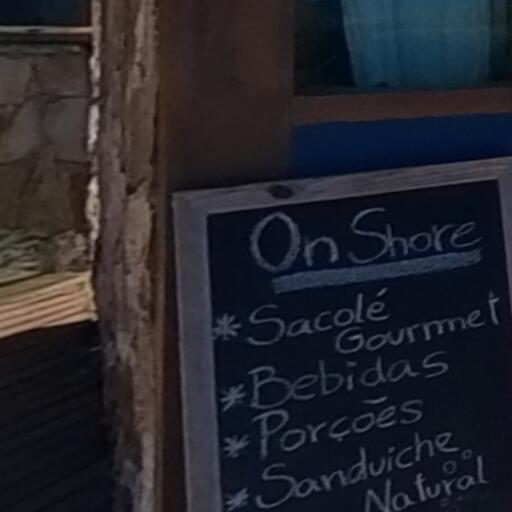 On Shore
* Sacolé
Gourmet
* Bebidas
* Porções
* Sanduiche
Natural